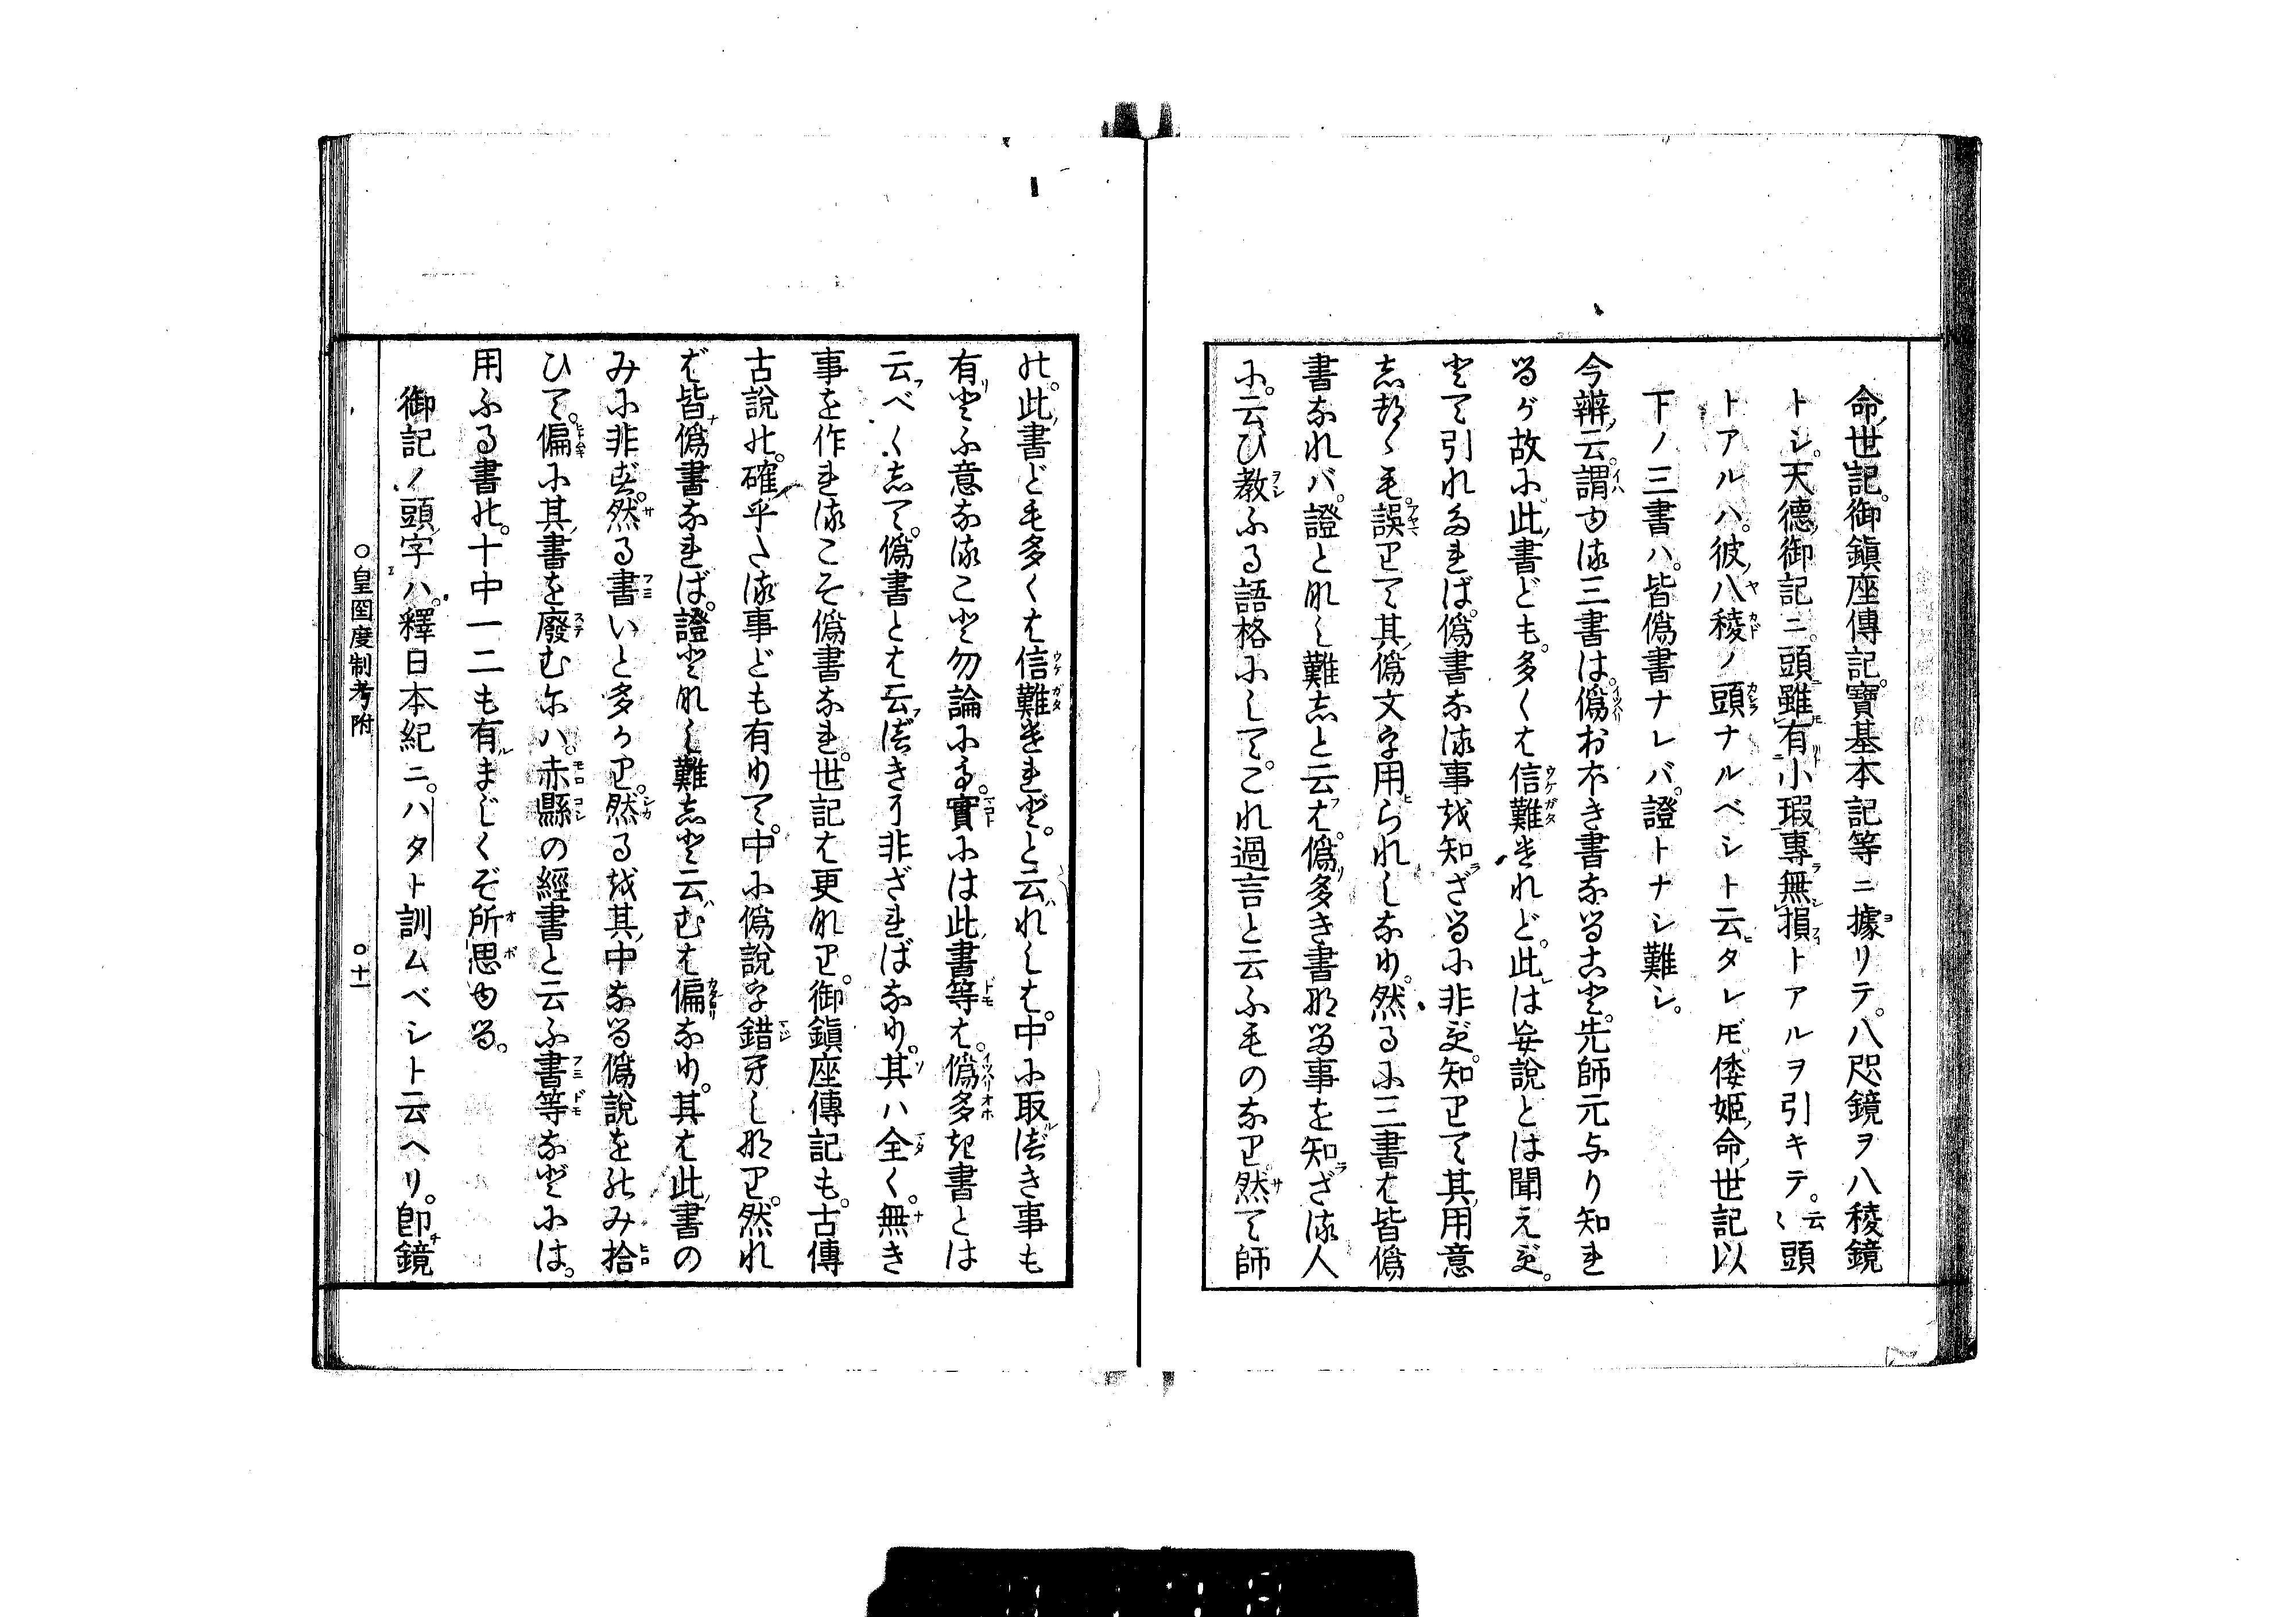 命世記。御鎭座傳記。寶基本記等ニ據リテ。八咫鏡ヲ八稜鏡
トシ。天德御記ニ。頭雖有小瑕專無損トアルヲ引キテ。云〻頭
トアルハ。彼八稜ノ頭ナルベシト云タレド。倭姫命世記以
下ノ三書ハ。皆僞書ナレバ。證トナシ難シ。
今辨云。謂ゆる三書は。僞おほき書なること。先師元より知れ
るが故に。此書ども。多くは信難けれど。此は妄説とは聞えず。
とて引れたれば。僞書なる事を知ざるに非ず。知りて其用意
したるも。誤りて其僞文字用られしなり。然るに三書は皆僞
書なれバ。證と爲し難しと云は。僞多き書なる事を知ざる人
に。云ひ教ふる語格にして。これ過言と云ふものなり然て師
の。此書ども多くは信難けれど。と云れしは。中に取べき事も
有といふ意なること勿論にて。實には此書等は。僞多き書とは
云べくして。僞書とは云べきに非ざればなり。其ハ全く。無き
事を作れるこそ僞書なれ。世記は更なり。御鎭座傳記も。古傳
古説の。確乎たる事ども有りて。中に僞説を錯へしなり。然れ
ば皆僞書なれば。證となし難しと云むは偏なり。其は此書の
みに非ず。然る書いと多かり。然るを其中なる僞説をのみ拾
ひて。偏に其書を廢むにハ。赤縣の經書と云ふ書等などには。
用ふる書の。十中一二も有まじくぞ所思ゆる。
御記ノ頭字ハ。釋日本紀ニ。ハタト訓ムベシト云ヘリ。卽鏡
○皇國度制考附　○十一